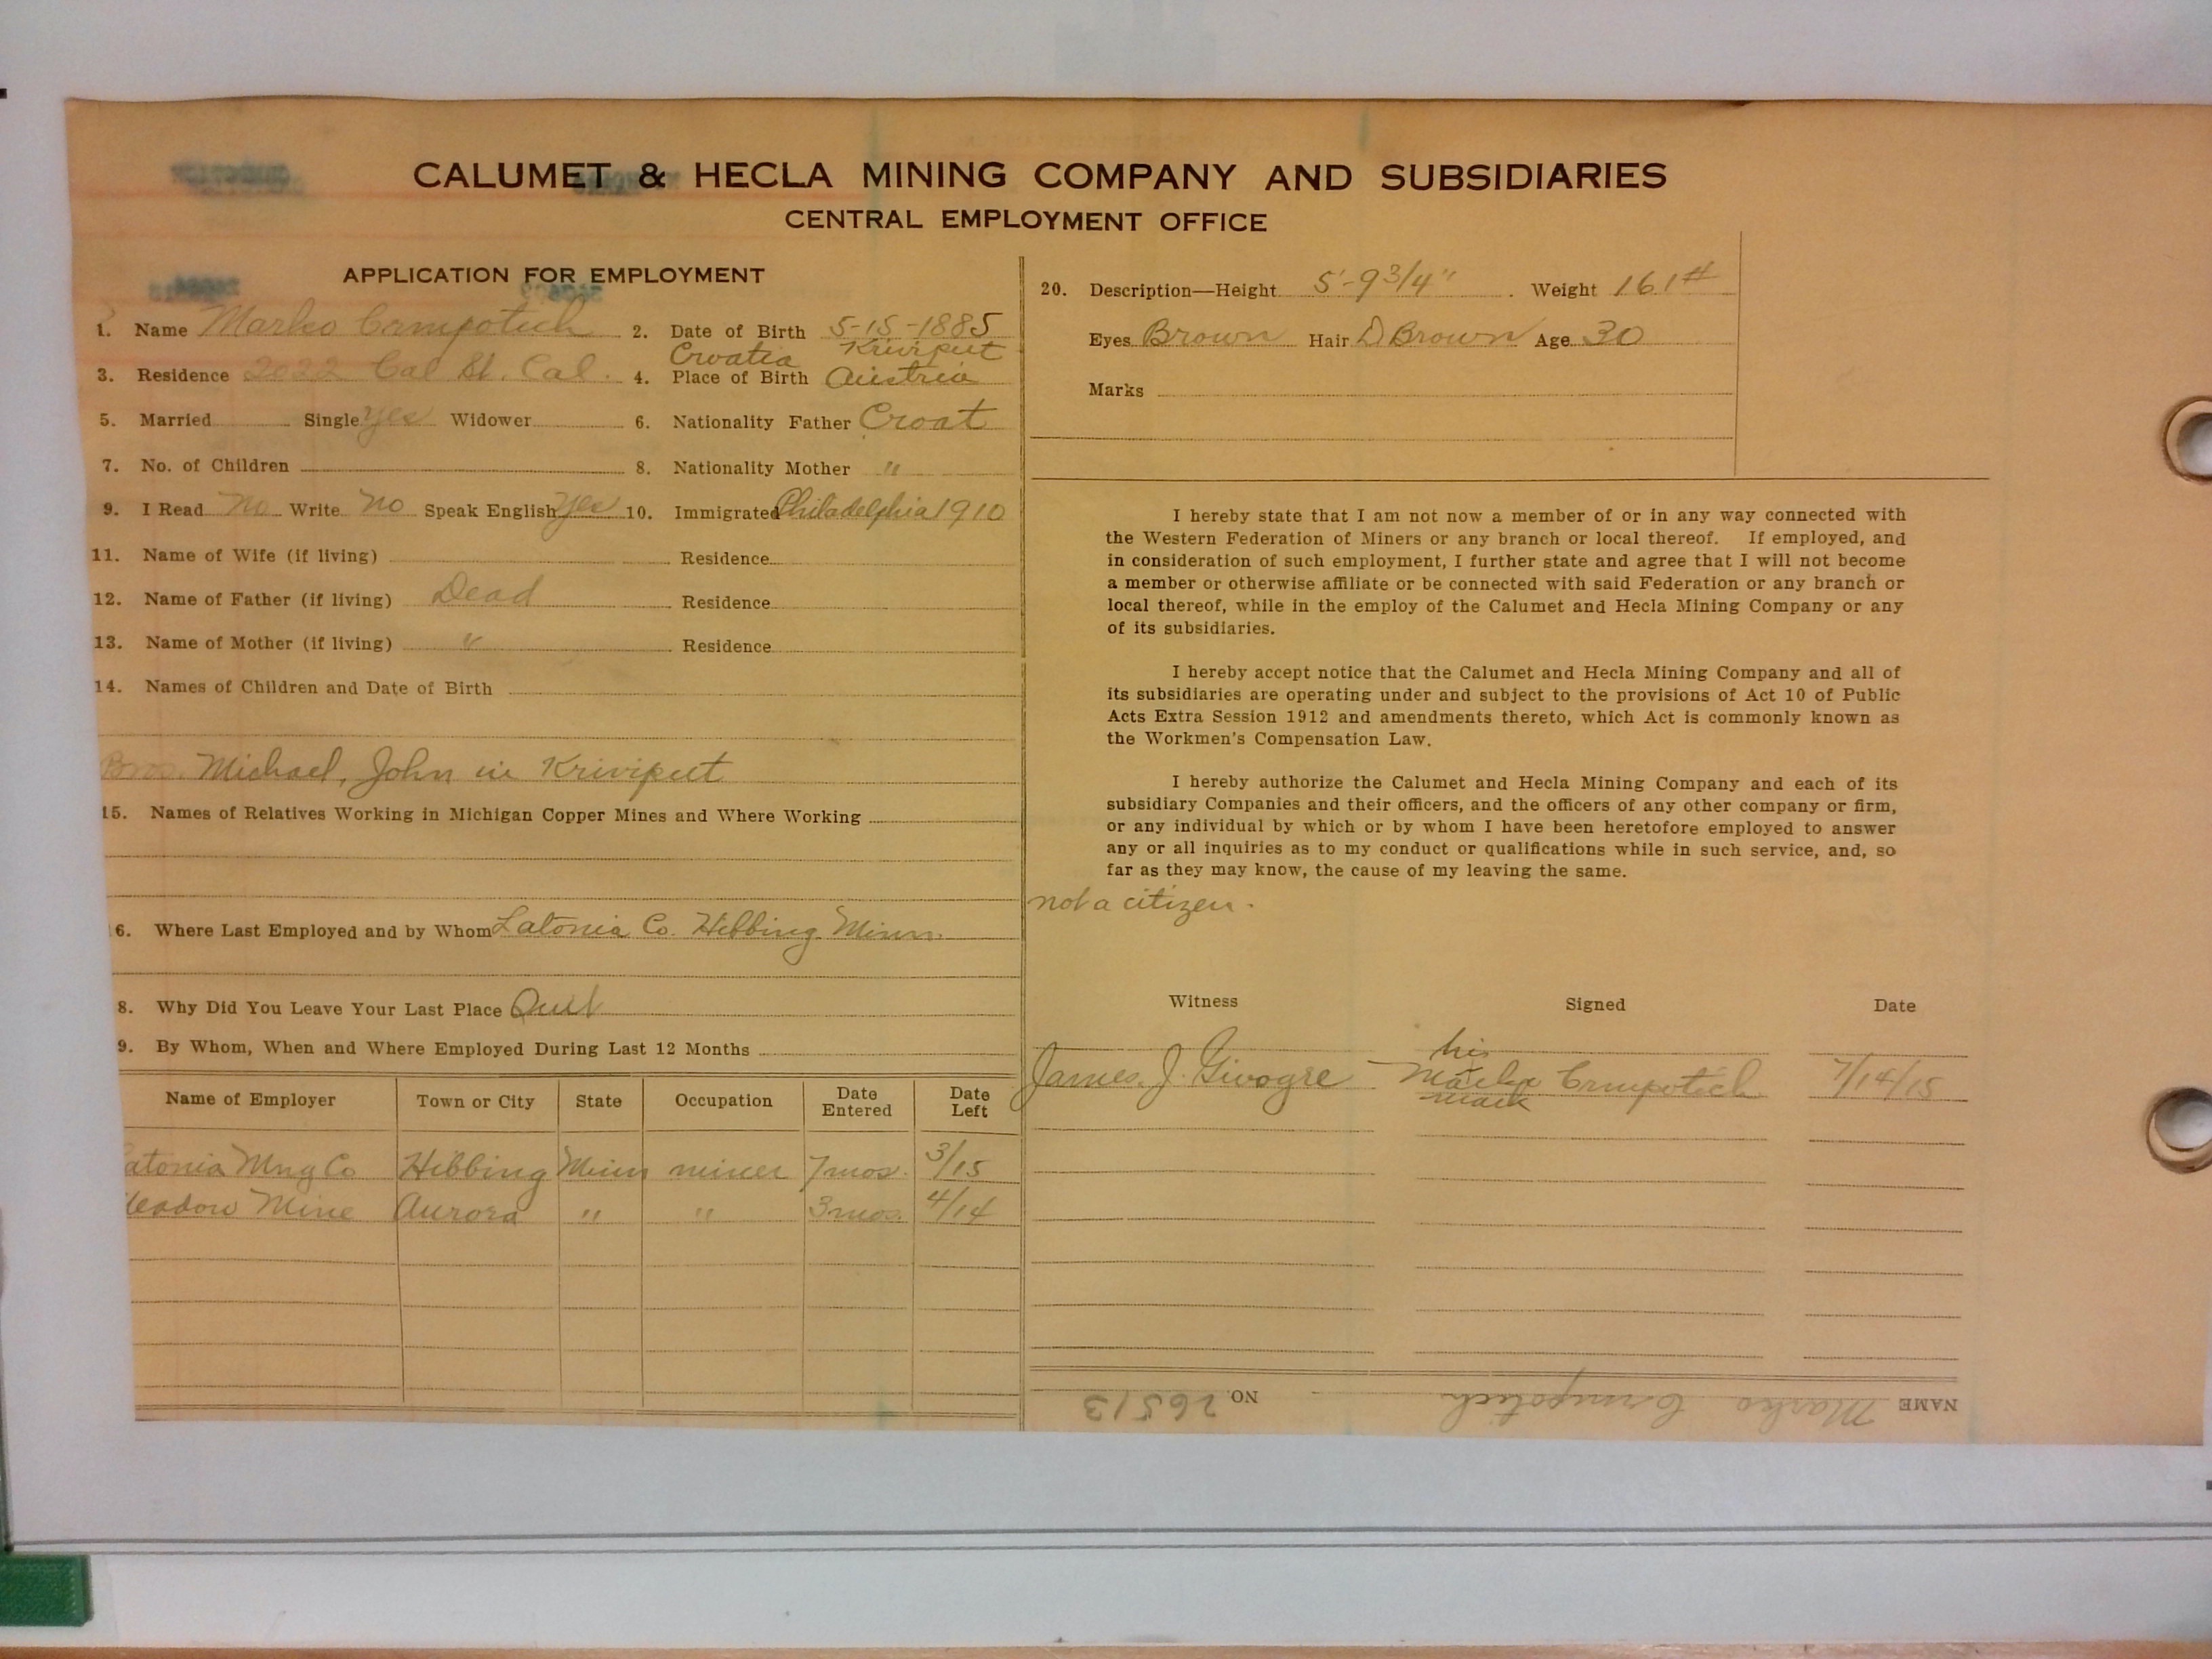 CALUMET & HECLA MINING COMPANY AND SUBSIDIARIES
CENTRAL EMPLOYMENT OFFICE
APPLICATION FOR EMPLOYMENT
1. Name Marko Crnpotich 2. Date of Birth 5-15-1885
Croatia Kriviput
3. Residence 2022 Cal St. Cal. 4. Place of Birth Austria
5. Married Single yes Widower 6. Nationality Father Croat
7. No. of Children 8. Nationality Mother "
9. I Read No Write No Speak English yes 10. Immigrated Philadelphia 1910
11. Name of Wife (if living) Residence
12. Name of Father (if living) Dead Residence
13. Name of Mother (if living) " Residence
14. Names of Children and Date of Birth
Bros. Michael, John in Kriviput
15. Names of Relatives Working in Michigan Copper Mines and Where Working
6. Where Last Employed and by Whom Latonia Co. Hibbing Minn.
8. Why Did You Leave Your Last Place Quit
9. By Whom, When and Where Employed During Last 12 Months
Name of Employer Town or City State Occupation Date Entered Date Left
atonia Mng Co Hibbing Minn miner 7 mos. 3/15
eadow Mine Aurora " " 3 mos. 4/14
20. Description—Height 5'-9 3/4" Weight 161#
Eyes Brown Hair D Brown Age 30
Marks
I hereby state that I am not now a member of or in any way connected with
the Western Federation of Miners or any branch or local thereof. If employed, and
in consideration of such employment, I further state and agree that I will not become
a member or otherwise affiliate or be connected with said Federation or any branch or
local thereof, while in the employ of the Calumet and Hecla Mining Company or any
of its subsidiaries.
I hereby accept notice that the Calumet and Hecla Mining Company and all of
its subsidiaries are operating under and subject to the provisions of Act 10 of Public
Acts Extra Session 1912 and amendments thereto, which Act is commonly known as
the Workmen's Compensation Law.
I hereby authorize the Calumet and Hecla Mining Company and each of its
subsidiary Companies and their officers, and the officers of any other company or firm,
or any individual by which or by whom I have been heretofore employed to answer
any or all inquiries as to my conduct or qualifications while in such service, and, so
far as they may know, the cause of my leaving the same.
not a citizen.
Witness Signed Date
his
James J. Givogre Marko x Crnpotich 7/14/15
mark
NAME Marko Crnpotich NO. 26513